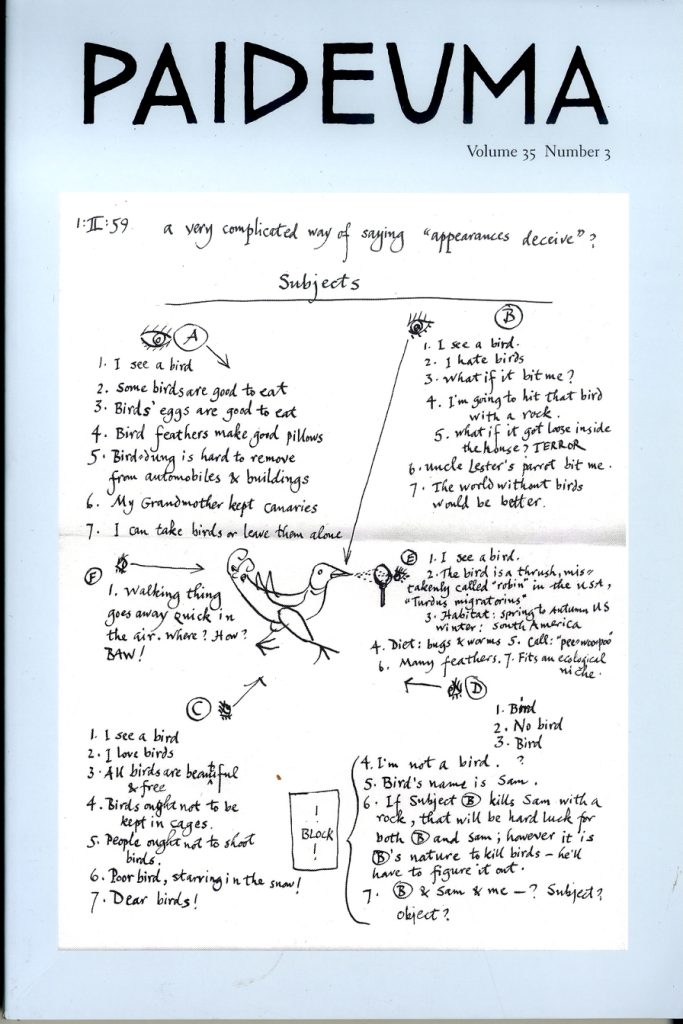 PAIDEUMA
Volume 35 Number 3
1:II:59 a very complicated way of saying "appearances deceive"?
Subjects
A
1. I see a bird
2. Some birds are good to eat
3. Birds' eggs are good to eat
4. Bird feathers make good pillows
5. Bird-dung is hard to remove
from automobiles & buildings
6. My Grandmother kept canaries
7. I can take birds or leave them alone
B
1. I see a bird.
2. I hate birds
3. What if it bit me?
4. I'm going to hit that bird
with a rock.
5. What if it got loose inside
the house? TERROR
6. Uncle Lester's parrot bit me.
7. The world without birds
would be better.
F
1. Walking thing
goes away quick in
the air. Where? How?
BAW!
E
1. I see a bird.
2. The bird is a thrush, mis=
takenly called "robin" in the USA,
"Turdus migratorius"
3. Habitat: spring to Autumn US
winter: South America
4. Diet: bugs & worms 5. Call: "pee=woo=poo"
6. Many feathers. 7. Fits an ecological
niche.
C
1. I see a bird
2. I love birds
3. All birds are beautiful
& free
4. Birds ought not to be
kept in cages.
5. People ought not to shoot
birds.
6. Poor bird, starving in the snow!
7. Dear birds!
D
1. Bird
2. No bird
3. Bird
4. I'm not a bird. ?
5. Bird's name is Sam.
6. If Subject B kills Sam with a
rock, that will be hard luck for
both B and Sam; however it is
B's nature to kill birds – he'll
have to figure it out.
7. B & Sam & me – ? Subject?
object?
!
BLOCK
!